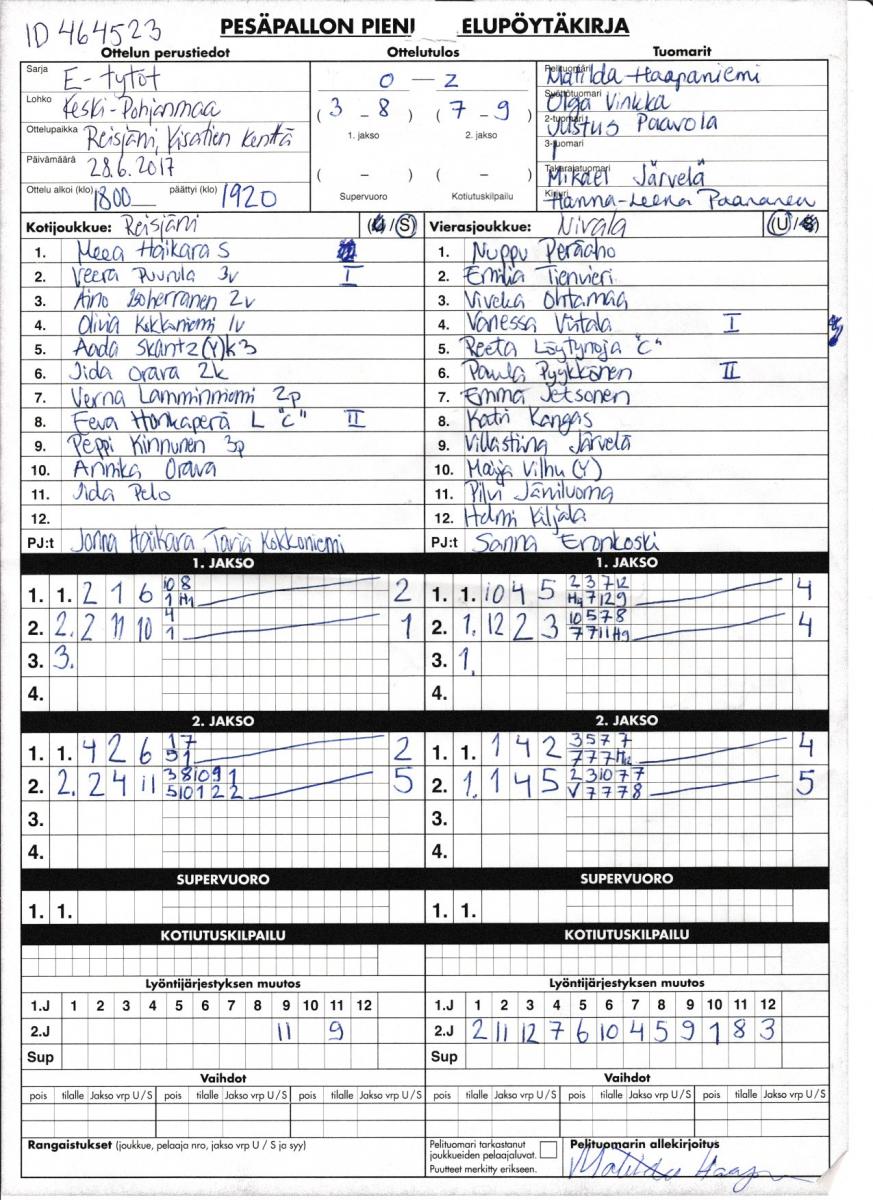 ID 464523
PESÄPALLON PIENI ELUPÖYTÄKIRJA
Ottelun perustiedot
Ottelutulos
Tuomarit
Sarja E-tytöt
Lohko Keski-Pohjanmaa
Ottelupaikka Reisjärvi, Kisatien kenttä
Päivämäärä 28.6.2017
Ottelu alkoi (klo) 1800 päättyi (klo) 1920
0 – 2
(3 – 8) (7 – 9)
1. jakso 2. jakso
( – ) ( – )
Supervuoro Kotiutuskilpailu
Pelituomari Matilda Haapaniemi
Syöttötuomari Olga Vinkka
2-tuomari Justus Paavola
3-tuomari
Takarajatuomari Mikael Järvelä
Kirjuri Hanna-Leena Paananen
Kotijoukkue: Reisjärvi (U/S)
1. Meea Haikara S
2. Veera Puurula 3v I
3. Aino Isoherranen 2v
4. Olivia Kokkoniemi 1v
5. Aada Skantz (Y) K3
6. Iida Orava 2k
7. Verna Lamminniemi 2p
8. Eeva Honkaperä L "C" II
9. Peppi Kinnunen 3p
10. Annika Orava
11. Iida Pelo
12.
PJ:t Jonna Haikara, Tarja Kokkoniemi
Vierasjoukkue: Nivala (U/S)
1. Nuppu Peräaho
2. Emilia Tienvieri
3. Viveka Ohtamaa
4. Vanessa Viitala I
5. Reeta Löytynoja "C"
6. Paula Pyykkönen II
7. Emma Jetsonen
8. Katri Kangas
9. Villastiina Järvelä
10. Maija Vilhu (Y)
11. Pilvi Jäniluoma
12. Helmi Kiljala
PJ:t Sanna Eronkoski
1. JAKSO
1. 1. 2 1 6 10 8 2
1 H1
2. 2. 2 11 10 4 1
1
3. 3.
4.
1. JAKSO
1. 1. 10 4 5 2 3 7 12 4
H9 7 12 9
2. 1. 12 2 3 10 5 7 8 4
7 7 11 H9
3. 1.
4.
2. JAKSO
1. 1. 4 2 6 1 7 2
5 1
2. 2. 2 4 11 3 8 10 9 1 5
5 10 1 2 2
3.
4.
2. JAKSO
1. 1. 1 4 2 3 5 7 7 4
7 7 7 H2
2. 1. 1 4 5 2 3 10 7 7 5
V 7 7 7 8
3.
4.
SUPERVUORO
1. 1.
SUPERVUORO
1. 1.
KOTIUTUSKILPAILU
KOTIUTUSKILPAILU
Lyöntijärjestyksen muutos
1.J 1 2 3 4 5 6 7 8 9 10 11 12
2.J 11 9
Sup
Lyöntijärjestyksen muutos
1.J 1 2 3 4 5 6 7 8 9 10 11 12
2.J 2 11 12 7 6 10 4 5 9 1 8 3
Sup
Vaihdot
pois tilalle Jakso vrp U / S pois tilalle Jakso vrp U / S pois tilalle Jakso vrp U / S
Vaihdot
pois tilalle Jakso vrp U / S pois tilalle Jakso vrp U / S pois tilalle Jakso vrp U / S
Rangaistukset (joukkue, pelaaja nro, jakso vrp U / S ja syy)
Pelituomari tarkastanut
joukkueiden pelaajaluvat.
Puutteet merkitty erikseen.
Pelituomarin allekirjoitus